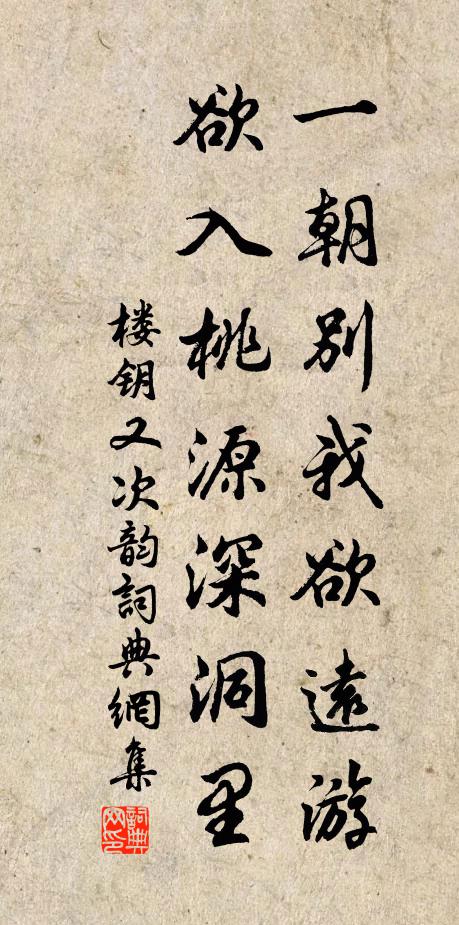 一朝别我欲遠游
欲入桃源深洞里
楼钥又次韵詞典網集
詞典網印